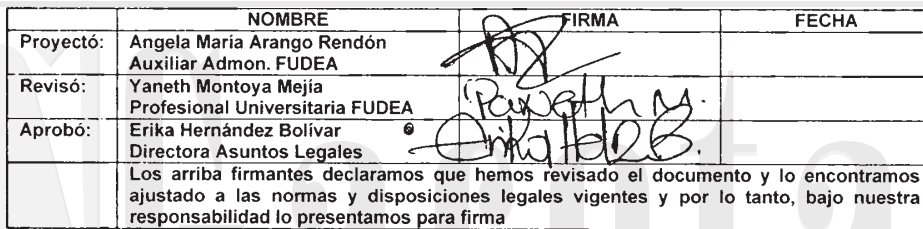 NOMBRE FIRMA FECHA
Proyectó: Angela María Arango Rendón
Auxiliar Admon. FUDEA
Revisó: Yaneth Montoya Mejía
Profesional Universitaria FUDEA
Aprobó: Erika Hernández Bolívar
Directora Asuntos Legales
Los arriba firmantes declaramos que hemos revisado el documento y lo encontramos
ajustado a las normas y disposiciones legales vigentes y por lo tanto, bajo nuestra
responsabilidad lo presentamos para firma